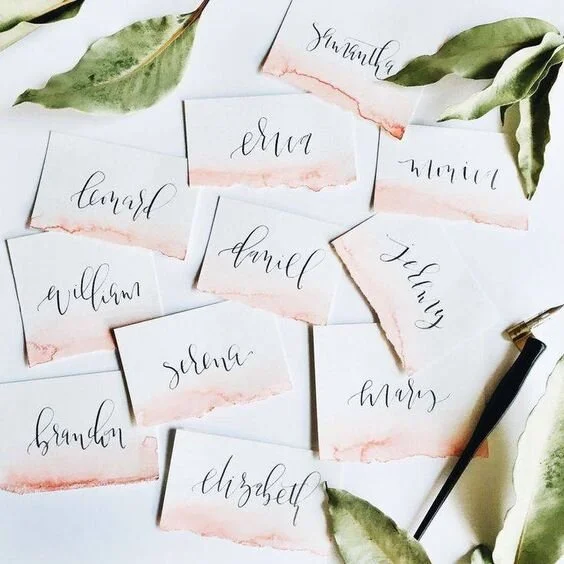 samantha
erica
monica
leonard
daniel
jeremy
william
serena
mary
brandon
elizabeth